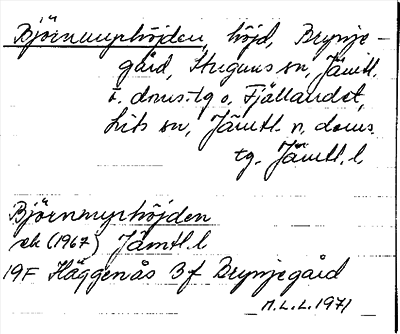 Björnmyrhöjden, höjd, Brynje-
gård, Stuguns sn, Jämtl.
ö. doms.tg o. Fjällandet,
Lits sn, Jämtl. n. doms.
tg. Jämtl. l.
Björnmyrhöjden
ek (1967) Jämtl. l
19F Häggenås 3f Brynjegård
M.L.L. 1971